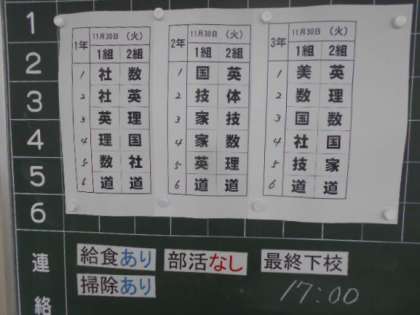 1
2
3
4
5
6
連絡
1年 11月30日 (火)
1組 2組
1 社 数
2 社 英
3 英 理
4 理 国
5 数 社
6 道 道
2年 11月30日 (火)
1組 2組
1 国 英
2 技 体
3 家 技
4 家 数
5 英 理
6 道 道
3年 11月30日 (火)
1組 2組
1 美 英
2 数 理
3 国 数
4 社 国
5 技 家
6 道 道
給食あり 部活なし 最終下校
掃除あり 17:00